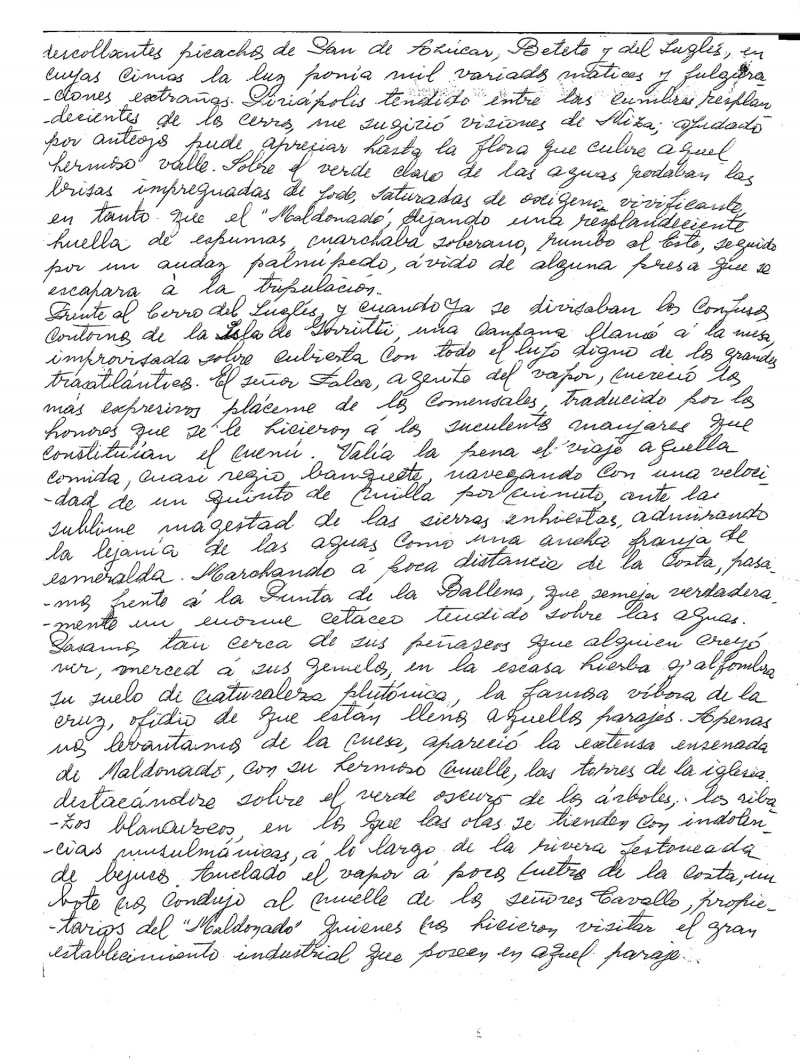 descollantes picachos de Pan de Azúcar, Betete y del Inglés, en
cuyas cimas la luz ponía mil variados mátices y fulgura-
-ciones extrañas. Piriápolis tendido entre las cumbres resplan
decientes de los cerros, me sugirió visiones de Niza; ayudado
por anteojos pude apreciar hasta la flora que cubre aquel
hermoso valle. Sobre el verde claro de las aguas rodaban las
brisas impregnadas de yodo, saturadas de oxígeno vivificante,
en tanto que el "Maldonado", dejando una resplandeciente
huella de espumas, marchaba soberano, rumbo al Este, seguido
por un audaz palmípedo, ávido de alguna presa que se
escapara à la tripulacion.
Frente al Cerro del Inglés, y cuando ya se divisaban los confusos
contornos de la Isla de Gorriti, una campana llamó á la mesa,
improvisada sobre cubierta con todo el lujo digno de los grandes
trasatlánticos. El señor Falca, agente del vapor, mereció los
más expresivos plácemes de los comensales, traducido por los
honores que se le hicieron á los suculentos manjares que
constituían el menú. Valía la pena el viaje aquella
comida, cuasi regio banquete, navegando con una veloci-
-dad de un quinto de milla por minuto, ante la
sublime magestad de las sierras enhiestas, admirando
la lejanía de las aguas como una ancha franja de
esmeralda. Marchando á poca distancia de la costa, pasa-
-mos frente á la Punta de la Ballena, que semeja verdadera-
-mente un enorme cetáceo tendido sobre las aguas.
Pasamos tan cerca de sus peñascos que alguien creyó
ver, merced á sus gemelos, en la escasa hierba q' alfombra
su suelo de naturaleza plutónica, la famosa víbora de la
cruz, ofidio de que están llenos aquellos parajes. Apenas
nos levantamos de la mesa, apareció la extensa ensenada
de Maldonado, con su hermoso muelle, las torres de la iglesia
distacándose sobre el verde oscuro de los árboles, los riba-
-zos blancuzcos, en los que las olas se tienden con indolen-
-cias musulmánicas, á lo largo de la rivera festoneada
de bejucos. Anclado el vapor á pocos metros de la costa, un
bote nos condujo al muelle de los señores Cavallo, propie-
-tarios del "Maldonado" quienes nos hicieron visitar el gran
establecimiento industrial que poseen en aquel paraje.